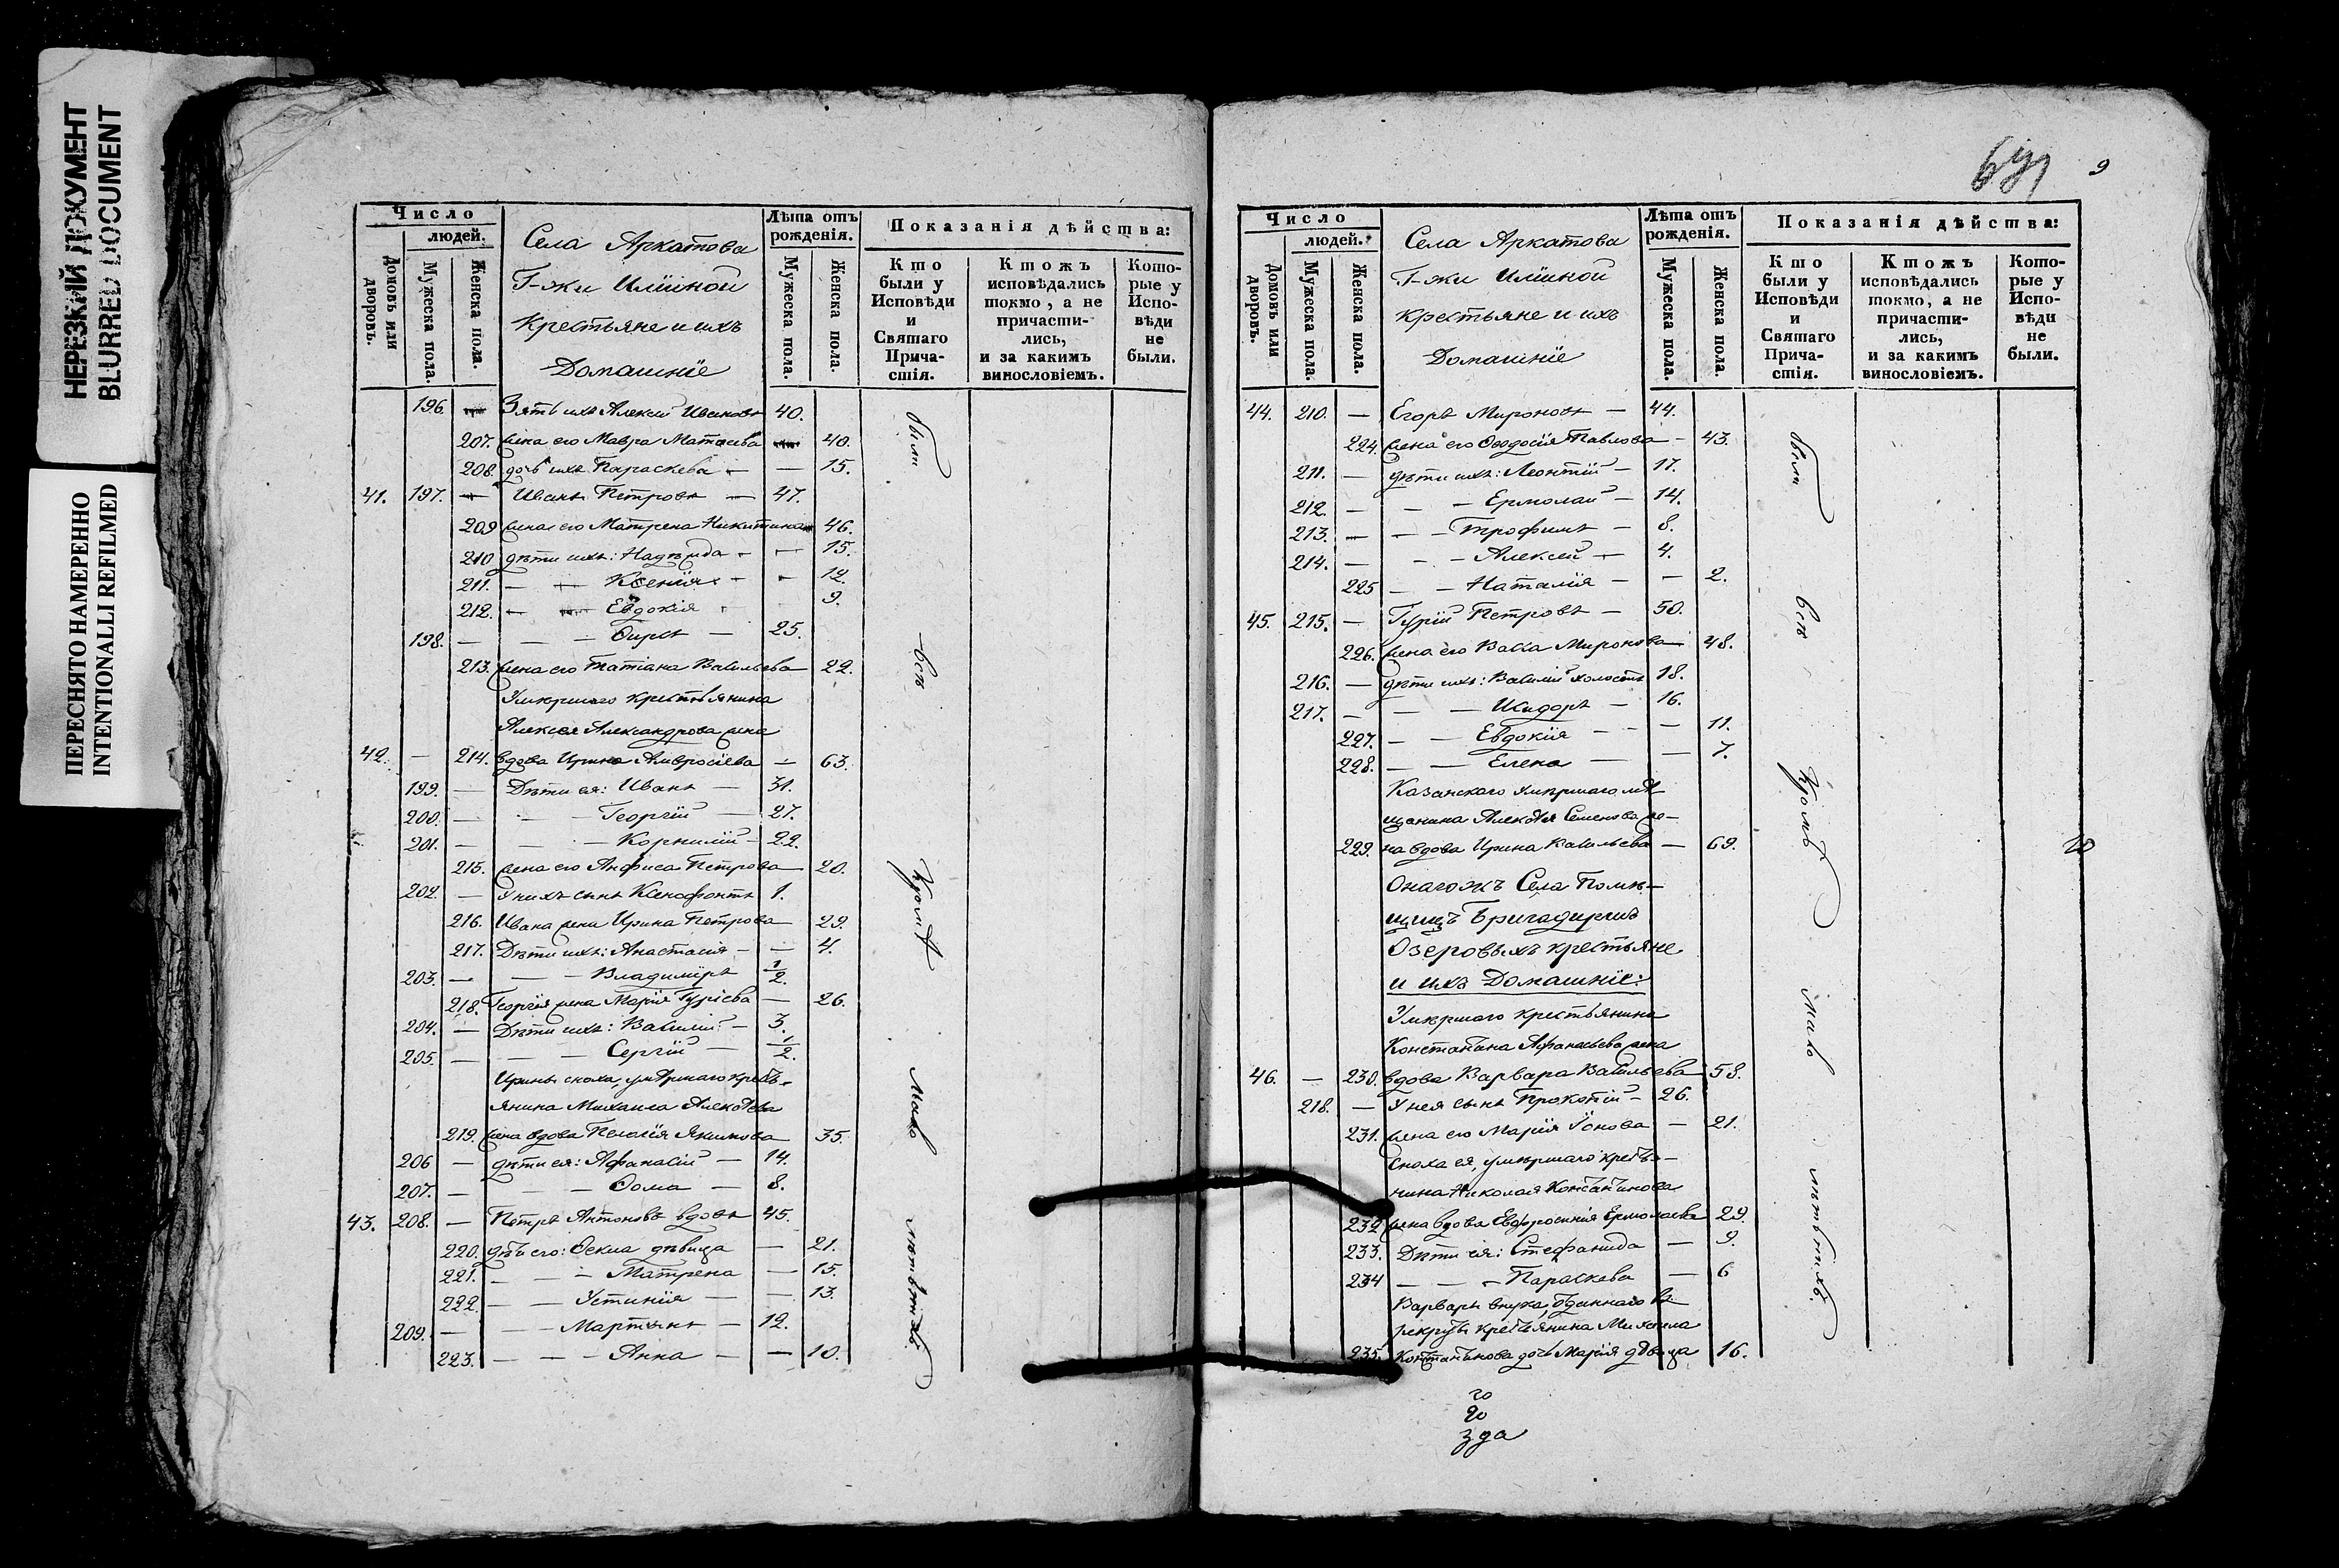 НЕРЕЗКИЙ ДОКУМЕНТ
BLURRED DOCUMENT
ПЕРЕСНЯТО НАМЕРЕННО
INTENTIONALLI REFILMED
Число
людей.
Домовъ или дворовъ.
Мужеска пола.
Женска пола.
Села Аркатова
Г-жи Илiиной
Крестьяне и ихъ
Домашнiе
Лѣта отъ рожденія.
Мужеска пола.
Женска пола.
Показанія дѣйства:
Кто были у Исповѣди и Святаго Причастія.
Ктожъ исповѣдались токмо, а не причастились, и за какимъ винословіемъ.
Которые у Исповѣди не были.
196. Зять ихъ Алексѣй Ивановъ 40.
207. жена его Мавра Матѳеева 40.
208. дочь ихъ Параскева — 15.
41. 197. — Иванъ Петровъ — 47.
209 жена его Матрена Никитина 46.
210. дѣти ихъ: Надежда — 15.
211. — Ксенiя — 12.
212. — Евдокiя 9.
198. — — — — 25.
213. жена его Татiана Васильева 22.
Умершаго крестьянина
Алексея Александрова жена
42. — 214. вдова Ирина Амвросiева — 63.
199. — Дѣти ея: Иванъ — 31.
200. — Георгiй — 27.
201. — — — Корнилiй — 22.
215. жена его Анфиса Петрова 20.
202. — У нихъ сынъ Ксенофонтъ 1.
216. Ивана жена Ирина Петрова 29.
217. Дѣти ихъ: Анастасiя — — 4.
203. — — — Владимiръ 1/2.
218. Георгiя жена Марiя Гурiева — 26.
204. — Дѣти ихъ: Василiй — 3.
205. — — — Сергiй — 1/2.
Ирины сноха, умершаго кресть-
янина Михаила Алексѣева
219. жена вдова Пелагiя Якимова 35.
206 — дѣти ея: Афанасiй — 14.
207. — — — Ѳома — 8.
43. 208. — Петръ Антоновъ вдовъ 45.
220. дѣти его: Ѳекла дѣвица — 21.
221. — — — Матрена — 15.
222. — — Устинiя — — 13.
209. — — — Мартынъ — 12.
223. — — — Анна — — 10.
были
всѣ
кромѣ
мало
лѣтнихъ
9
Число
людей.
Домовъ или дворовъ.
Мужеска пола.
Женска пола.
Села Аркатова
Г-жи Илiиной
крестьяне и ихъ
Домашнiе
Лѣта отъ рожденія.
Мужеска пола.
Женска пола.
Показанія дѣйства:
Кто были у Исповѣди и Святаго Причастія.
Ктожъ исповѣдались токмо, а не причастились, и за какимъ винословіемъ.
Которые у Исповѣди не были.
44. 210. — Егоръ Мироновъ — 44.
224. жена его Ѳеодосiя Павлова — 43.
211. — дѣти ихъ: Леонтiй — 17.
212. — — — Ермолай — 14.
213. — — — Трофимъ — 8.
214. — — — Алексей — 4.
225 — — Наталiя — — 2.
45. 215. — Гурiй Петровъ — 50.
226. жена его Васса Миронова 48.
216. — дѣти ихъ: Василiй холостъ 18.
217. — — — Исидоръ — 16.
227. — — Евдокiя — — 11.
228. — — Елена — — 7.
Казанскаго умершаго мѣ-
щанина Алексѣя Семенова же-
229. на вдова Ирина Васильева — 69.
Онагожъ Села Помѣ-
щицъ Бригадиршъ
Озеровыхъ крестьяне
и ихъ Домашнiе:
Умершаго крестьянина
Константина Афанасьева жена
46. — 230. вдова Варвара Васильева 58.
218. — У нея сынъ Прокопiй — 26.
231. жена его Марiя Iонова — 21.
Сноха ея, умершаго крестья-
нина Николая Константинова
232 жена вдова Евфросинiя Ермолаева 29.
233. Дѣти ея: Стефанида — 9.
234 — — — Параскева — 6
Варвары внука, отданнаго въ
рекруты крестьянина Михаила
235. Константинова дочь Марiя дѣвица 16.
были
всѣ
кромѣ
мало
лѣтнихъ.